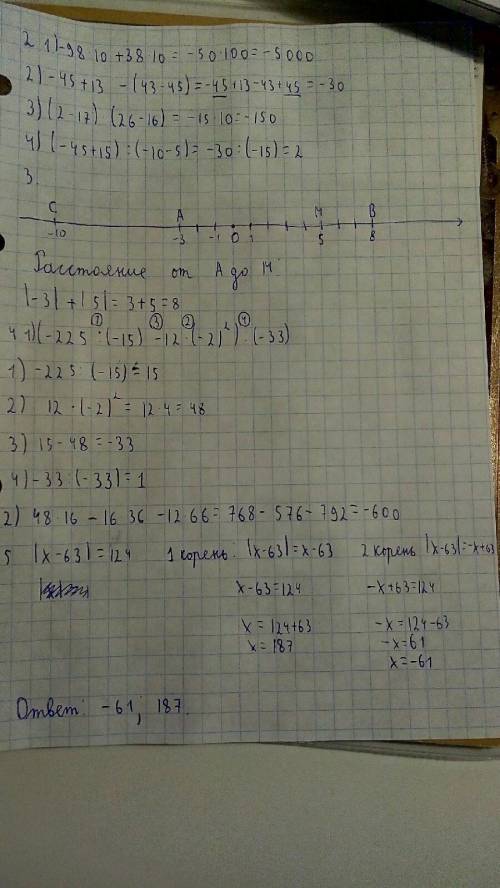 2 1) -98·10 +38·10 = -50·100 = -5000
2) -45+13 -(43-45) = -45+13-43+45 = -30
3) (2-17) (26-16) = -15·10 = -150
4) (-45+15) : (-10-5) = -30 : (-15) = 2
3.
C A M B
-10 -3 -1 0 1 5 8
Расстояние от А до М:
|-3| + |5| = 3+5 = 8
① ③ ② ④
4 1) (-225 : (-15) -12 · (-2)²) : (-33)
1) -225 : (-15) = 15
2) 12 · (-2)² = 12·4 = 48
3) 15 - 48 = -33
4) -33 : (-33) = 1
2) 48·16 - 16·36 - 12·66 = 768 - 576 - 792 = -600
5 |x-63| = 124 1 корень: |x-63| = x-63 2 корень |x-63| = -x+63
x-63 = 124 -x+63 = 124
x = 124+63 -x = 124-63
x = 187 -x = 61
x = -61
Ответ: -61; 187.